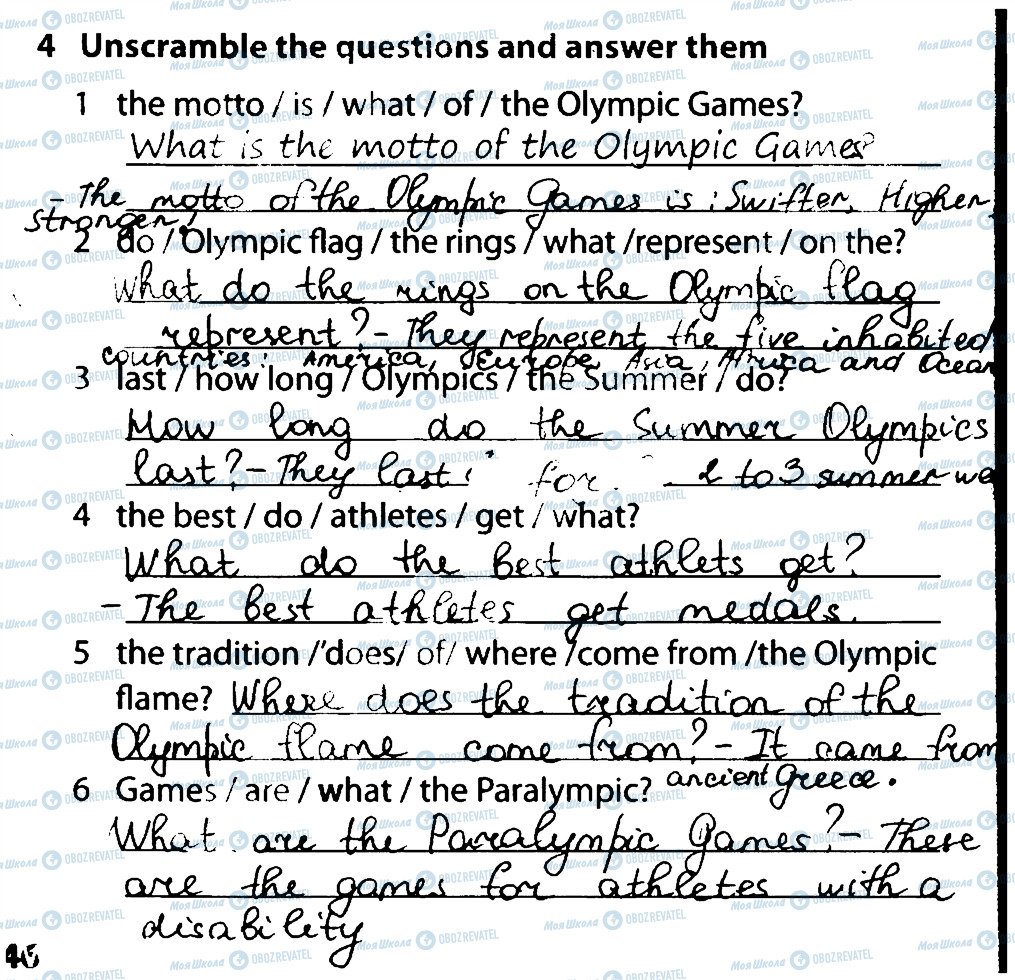 4 Unscramble the questions and answer them
1 the motto / is / what / of / the Olympic Games?
What is the motto of the Olympic Games?
- The motto of the Olympic Games is: Swifter, Higher,
stronger!
2 do / Olympic flag / the rings / what /represent / on the?
What do the rings on the Olympic flag
represent? - They represent the five inhabited
countries: America, Europe, Asia, Africa and Ocean
3 last / how long / Olympics / the Summer / do?
How long do the Summer Olympics
last? - They last for 2 to 3 summer we
4 the best / do / athletes / get / what?
What do the best athlets get?
- The best athletes get medals.
5 the tradition / does/ of/ where /come from /the Olympic
flame? Where does the tradition of the
Olympic flame come from? - It came from
ancient Greece.
6 Games / are / what / the Paralympic?
What are the Paralympic Games? - There
are the games for athletes with a
disability
Моя Школа OBOZREVATEL